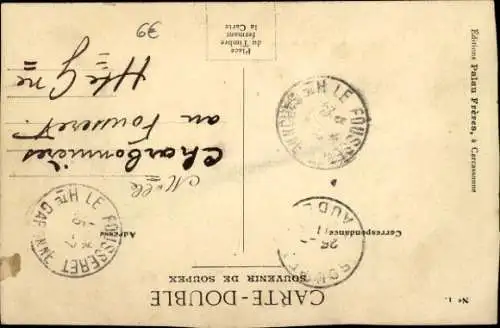 CARTE-DOUBLE
SOUVENIR DE SOUPEX
No 1.
Correspondance
Adresse
Place
du Timbre
fermant
la Carte
Editions Palau Frères, à Carcassonne
Charbonnières
au Fousseret
Hte Gne
39
LE FOUSSERET
Hte GARONNE
LE FOUSSERET
AUDE